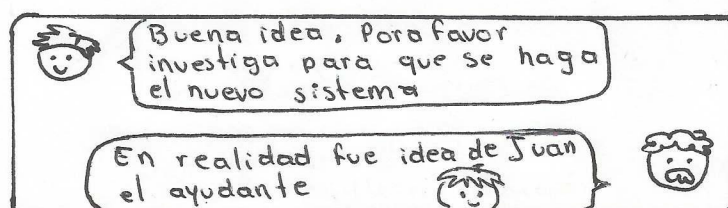 Buena idea. Pora favor
investiga para que se haga
el nuevo sistema
En realidad fue idea de Juan
el ayudante